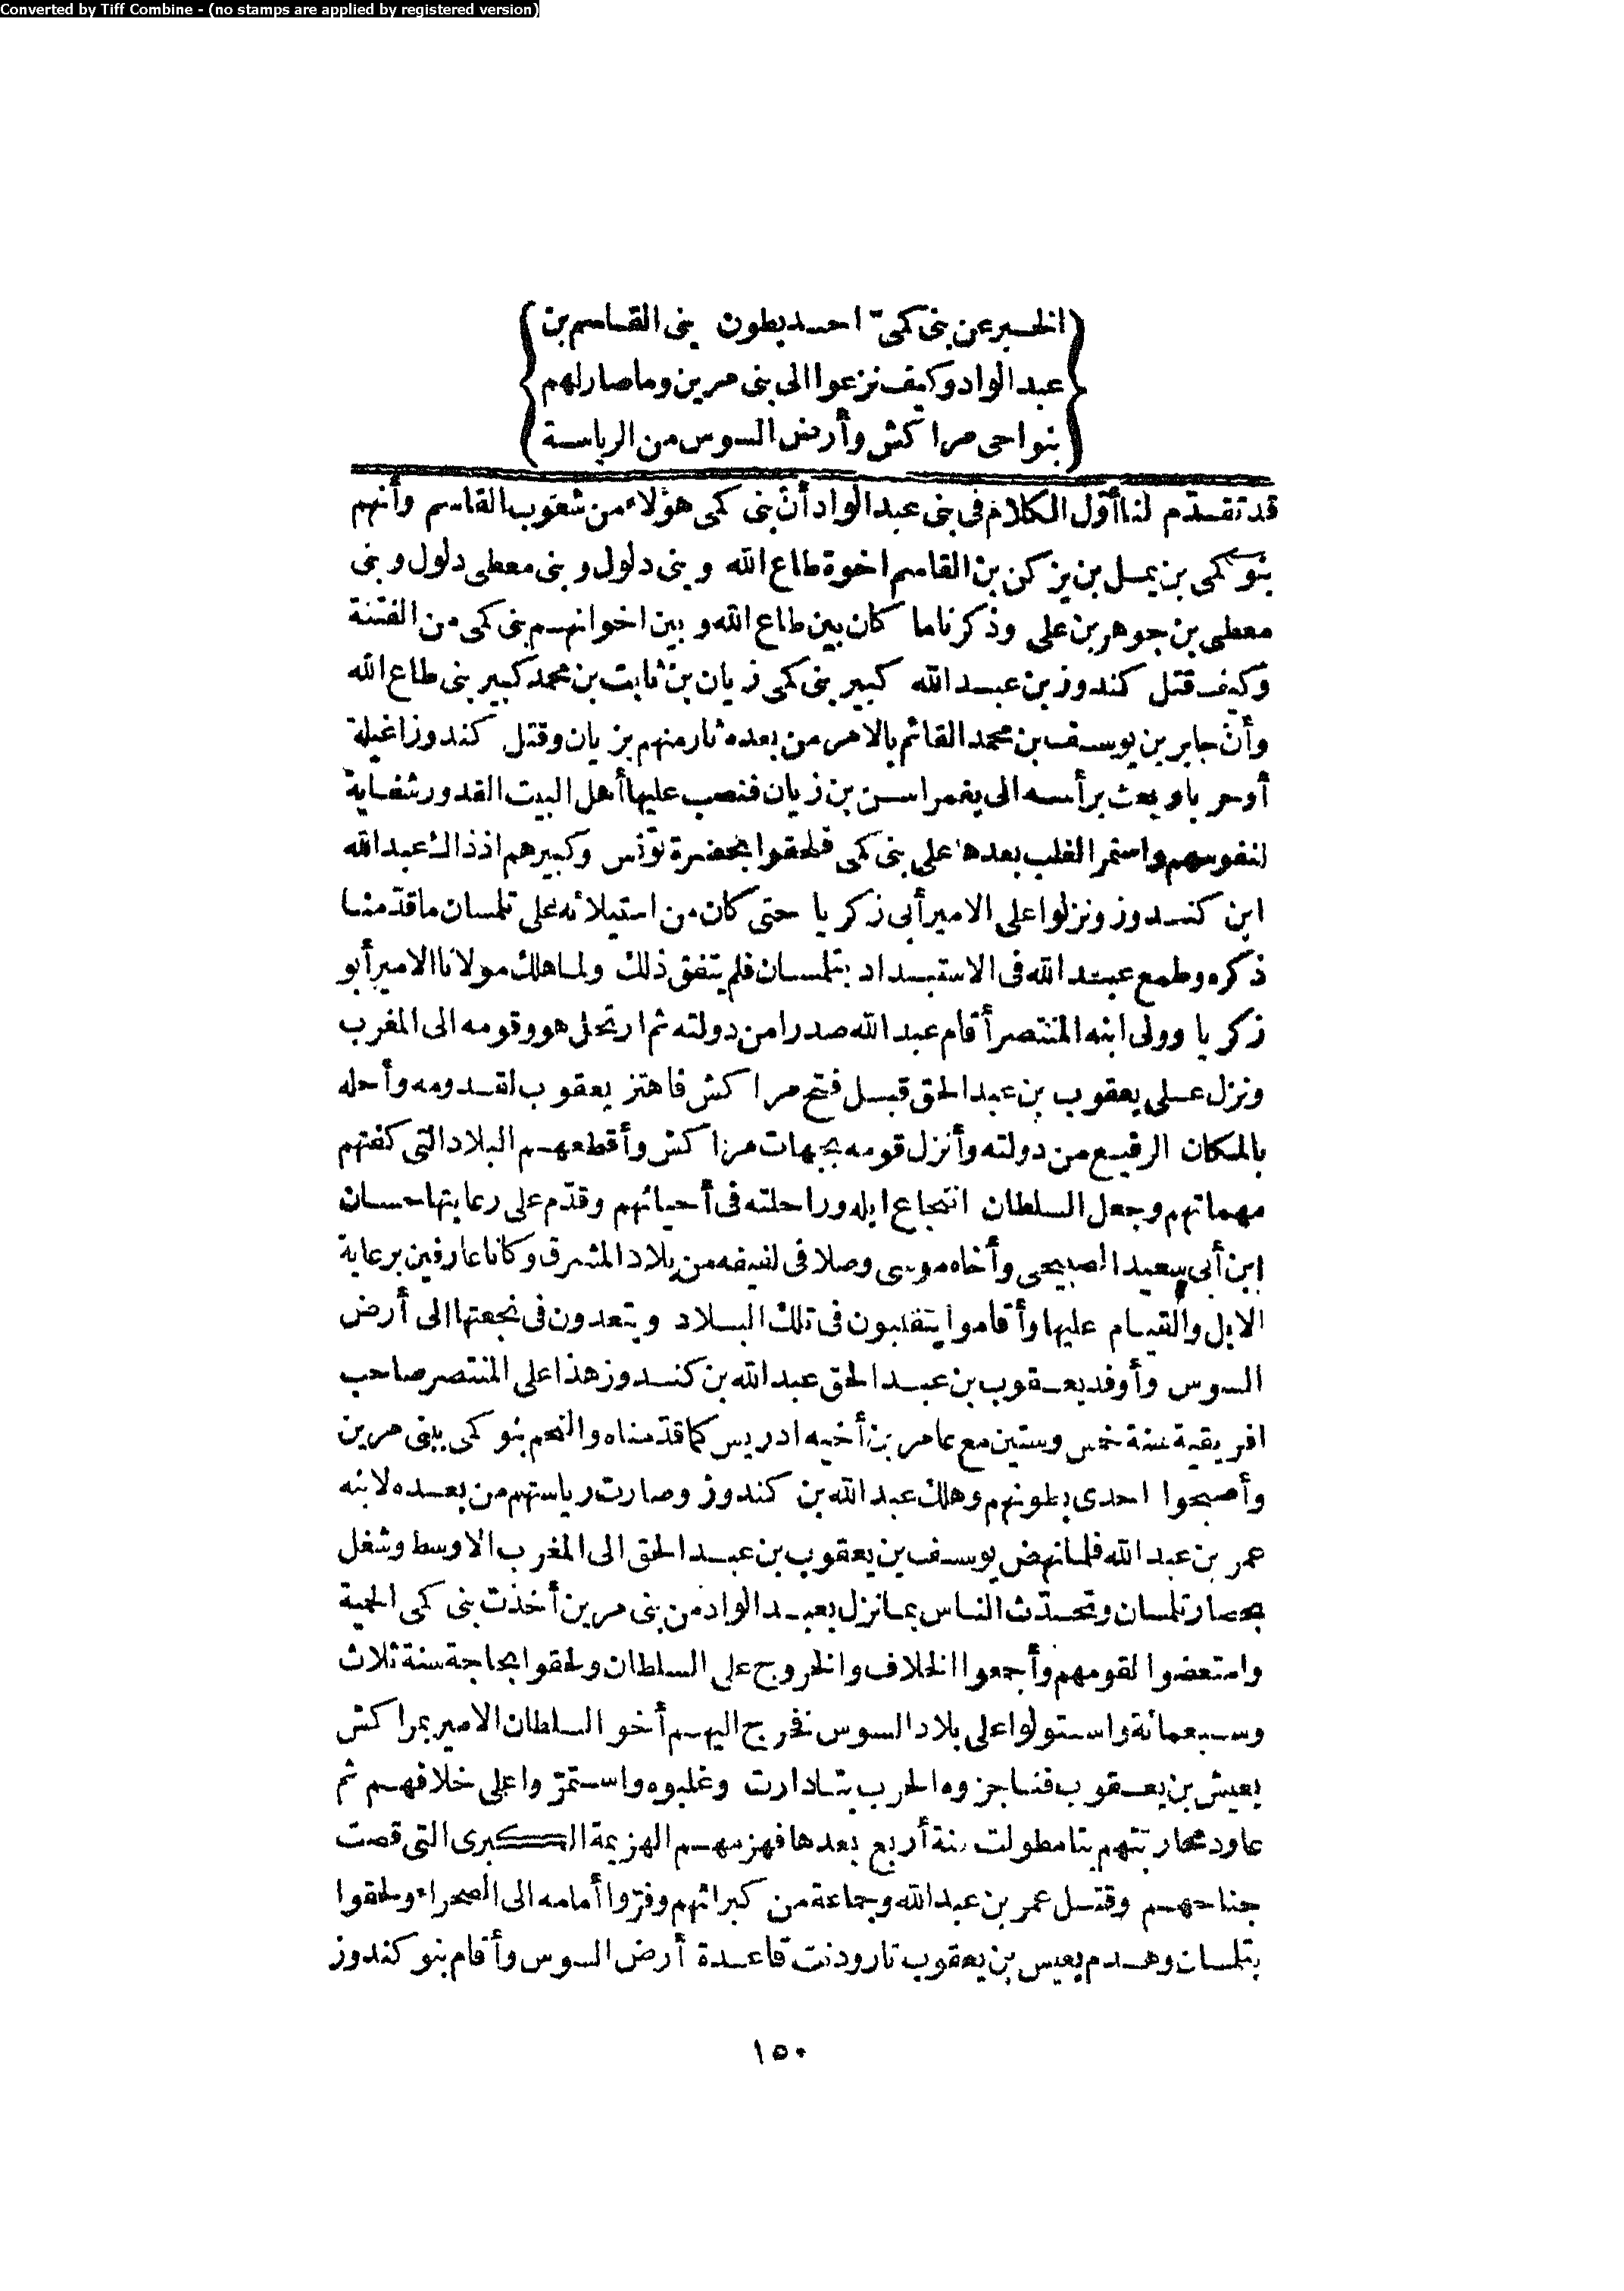 Converted by Tiff Combine - (no stamps are applied by registered version)
الخبر عن بنى كمىّ احد بطون بنى القاسم بن
عبد الواد وكيف نزعوا الى بنى مرين وما صار لهم
بنواحى مراكش وأرض السوس من الرياسة
قد تقدّم لنا أوّل الكلام فى بنى عبد الواد أنّ بنى كمى هؤلاء من شعوب القاسم وأنهم
بنو كمى بن يمسل بن يزكن بن القاسم اخوة طاع الله وبنى دلول وبنى معطى دلول وبنى
معطى بن جوهر بن على وذكرنا ما كان بين طاع الله وبين اخوانهم بنى كمى من الفتنة
وكيف قتل كندوز بن عبد الله كبير بنى كمى زيان بن ثابت بن محمد كبير بنى طاع الله
وأنّ جابر بن يوسف بن محمد القائم بالامر من بعده ثار منهم بزيان وقتل كندوزا غيلة
أو حربا وبعث برأسه الى يغمراسن بن زيان فنصب عليها أهل البيت القدور شفاية
لنفوسهم واستمر الغلب بعدها على بنى كمى فلحقوا بحضرة تونس وكبيرهم اذ ذاك عبد الله
ابن كندوز ونزلوا على الامير أبى زكريا حتى كان من استيلائه على تلمسان ما قدّمنا
ذكره وطمع عبد الله فى الاستبداد بتلمسان فلم يتفق ذلك ولما هلك مولانا الامير أبو
زكريا وولى ابنه المنتصر أقام عبد الله صدرا من دولته ثم ارتحل هو وقومه الى المغرب
ونزل على يعقوب بن عبد الحق قبل فتح مراكش فاهتز يعقوب لقدومه وأحله
بالمكان الرفيع من دولته وأنزل قومه بجهات مراكش وأقطعهم البلاد التى كفتهم
مهماتهم وجعل السلطان انتجاع ابله وراحلته فى أحيائهم وقدّم على رعايتها حسان
ابن أبى سعيد الصبيحى وأخاه موسى وصلا فى لفيفه من بلاد المشرق وكانا عارفين برعاية
الابل والقيام عليها وأقاموا يتقلبون فى تلك البلاد ويتعدون فى نجعتها الى أرض
السوس وأوفد يعقوب بن عبد الحق عبد الله بن كندوز هذا على المنتصر صاحب
افريقية سنة خمس وستين مع عامر بن أخيه ادريس كما قدّمناه والتحم بنو كمى ببنى مرين
وأصبحوا احدى بطونهم وهلك عبد الله بن كندوز وصارت رياستهم من بعده لابنه
عمر بن عبد الله فلما نهض يوسف بن يعقوب بن عبد الحق الى المغرب الاوسط وشغل
بحصار تلمسان وتحدّث الناس بما نزل بعبد الواد من بنى مرين أخذت بنى كمى الحمية
وامتعضوا لقومهم وأجمعوا الخلاف والخروج على السلطان ولحقوا بحاجة سنة ثلاث
وسبعمائة واستولوا على بلاد السوس فخرج اليهم أخو السلطان الامير بمراكش
يعيش بن يعقوب فناجزوه الحرب بتادارت وغلبوه واستمرّوا على خلافهم ثم
عاود محاربتهم بتامطولت سنة أربع بعدها فهزمهم الهزيمة الكبرى التى قصت
جناحهم وقتل عمر بن عبد الله وجماعة من كبرائهم وفرّوا أمامه الى الصحراء ولحقوا
بتلمسان وهدم يعيس بن يعقوب تارودنت قاعدة أرض السوس وأقام بنو كندوز
١٥٠